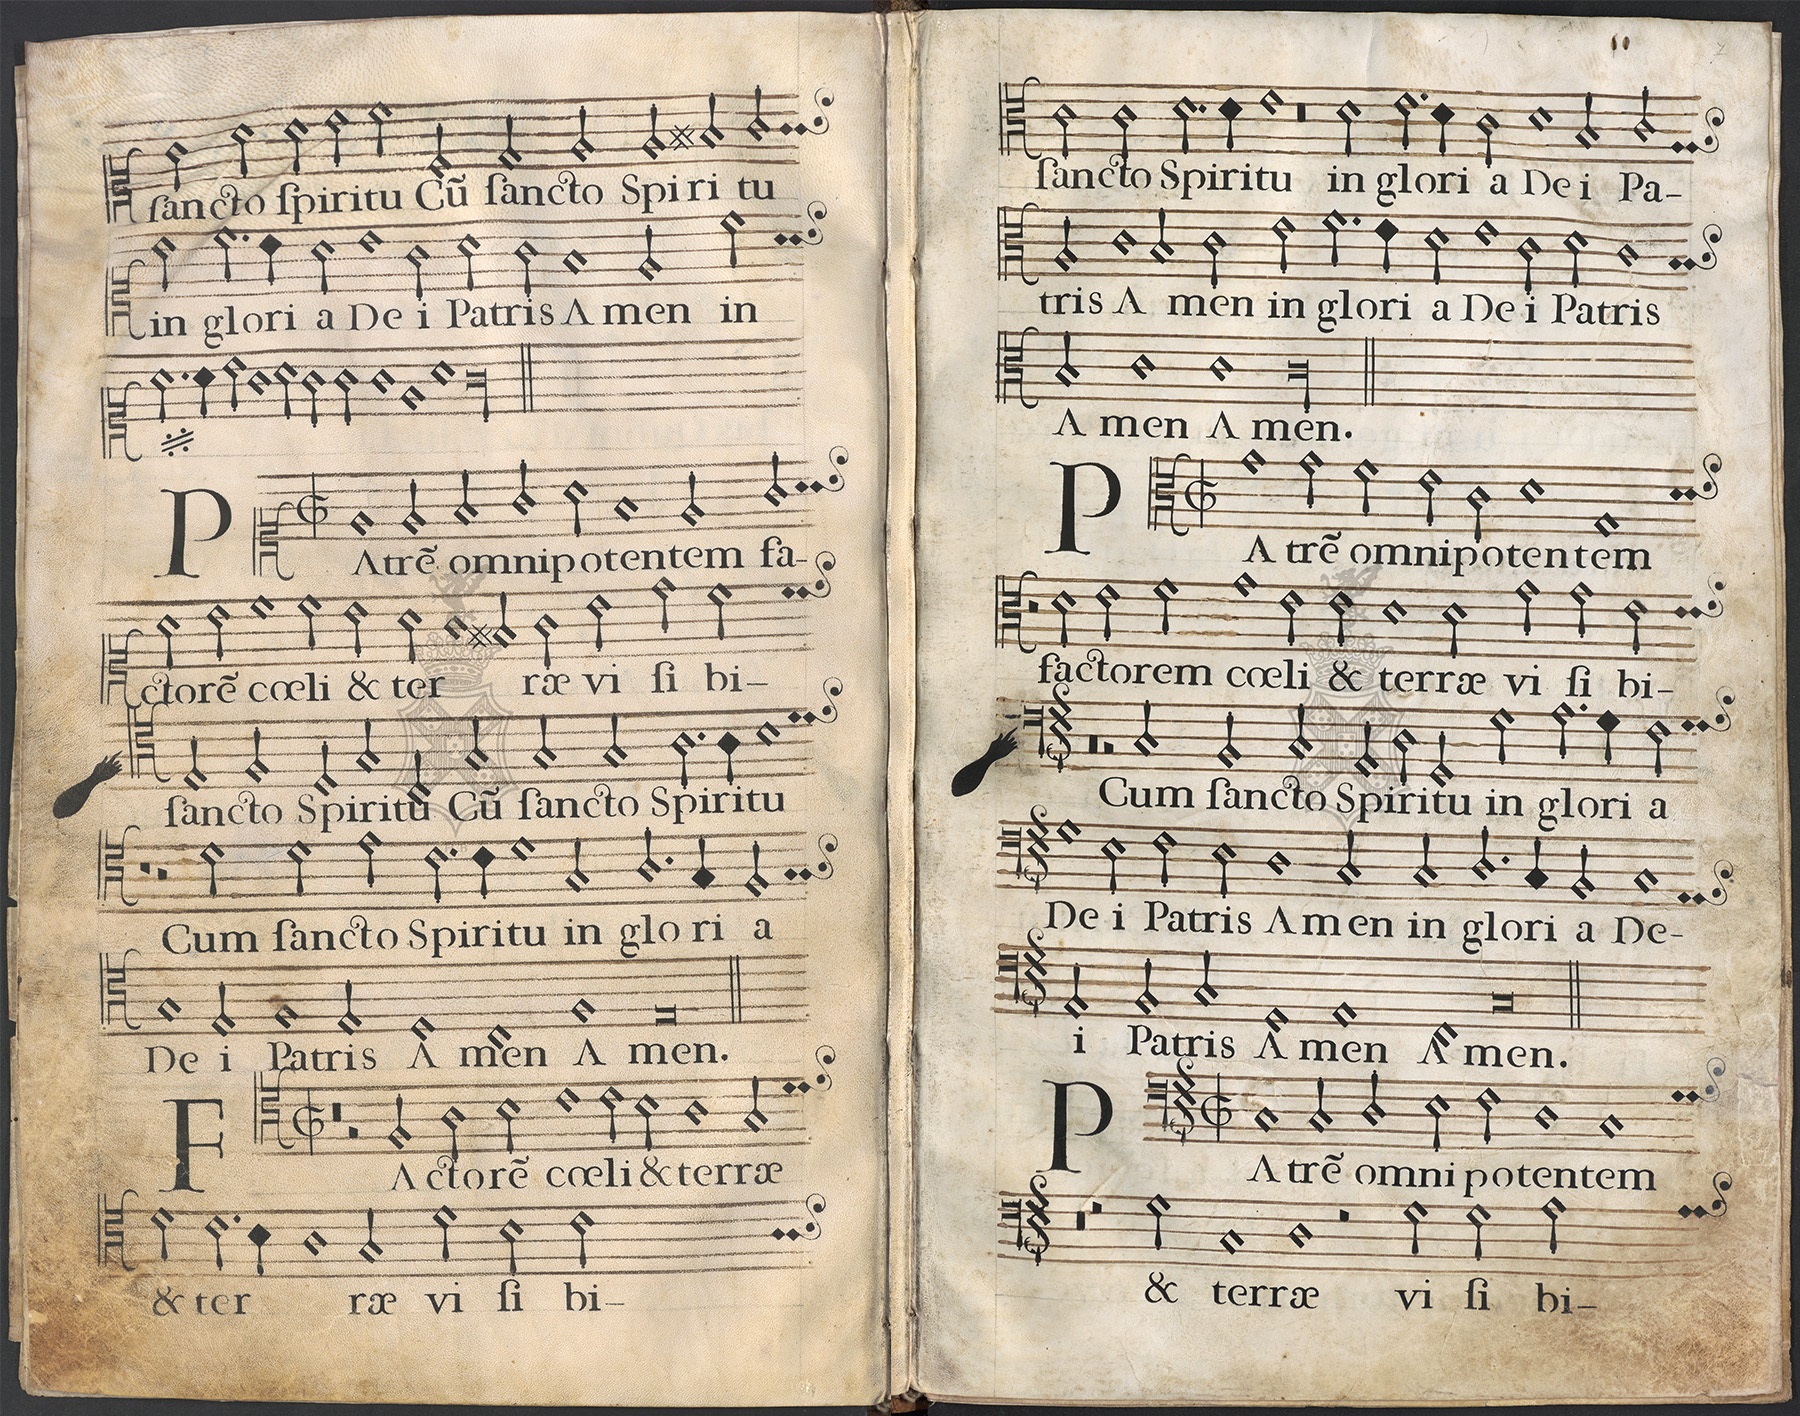 ſancto ſpiritu Cũ ſancto Spi ri tu
in glori a De i Patris A men in
P Atrẽ omnipotentem fa-
ctorẽ cœli & ter ræ vi ſi bi-
ſancto Spiritu Cũ ſancto Spiritu
Cum ſancto Spiritu in glo ri a
De i Patris A men A men.
F Actorẽ cœli & terræ
& ter ræ vi ſi bi-
ſancto Spiritu in glori a De i Pa-
tris A men in glori a De i Patris
A men A men.
P A trẽ omnipotentem
factorem cœli & terræ vi ſi bi-
Cum ſancto Spiritu in glori a
De i Patris A men in glori a De-
i Patris A men A men.
P A trẽ omni potentem
& terræ vi ſi bi-